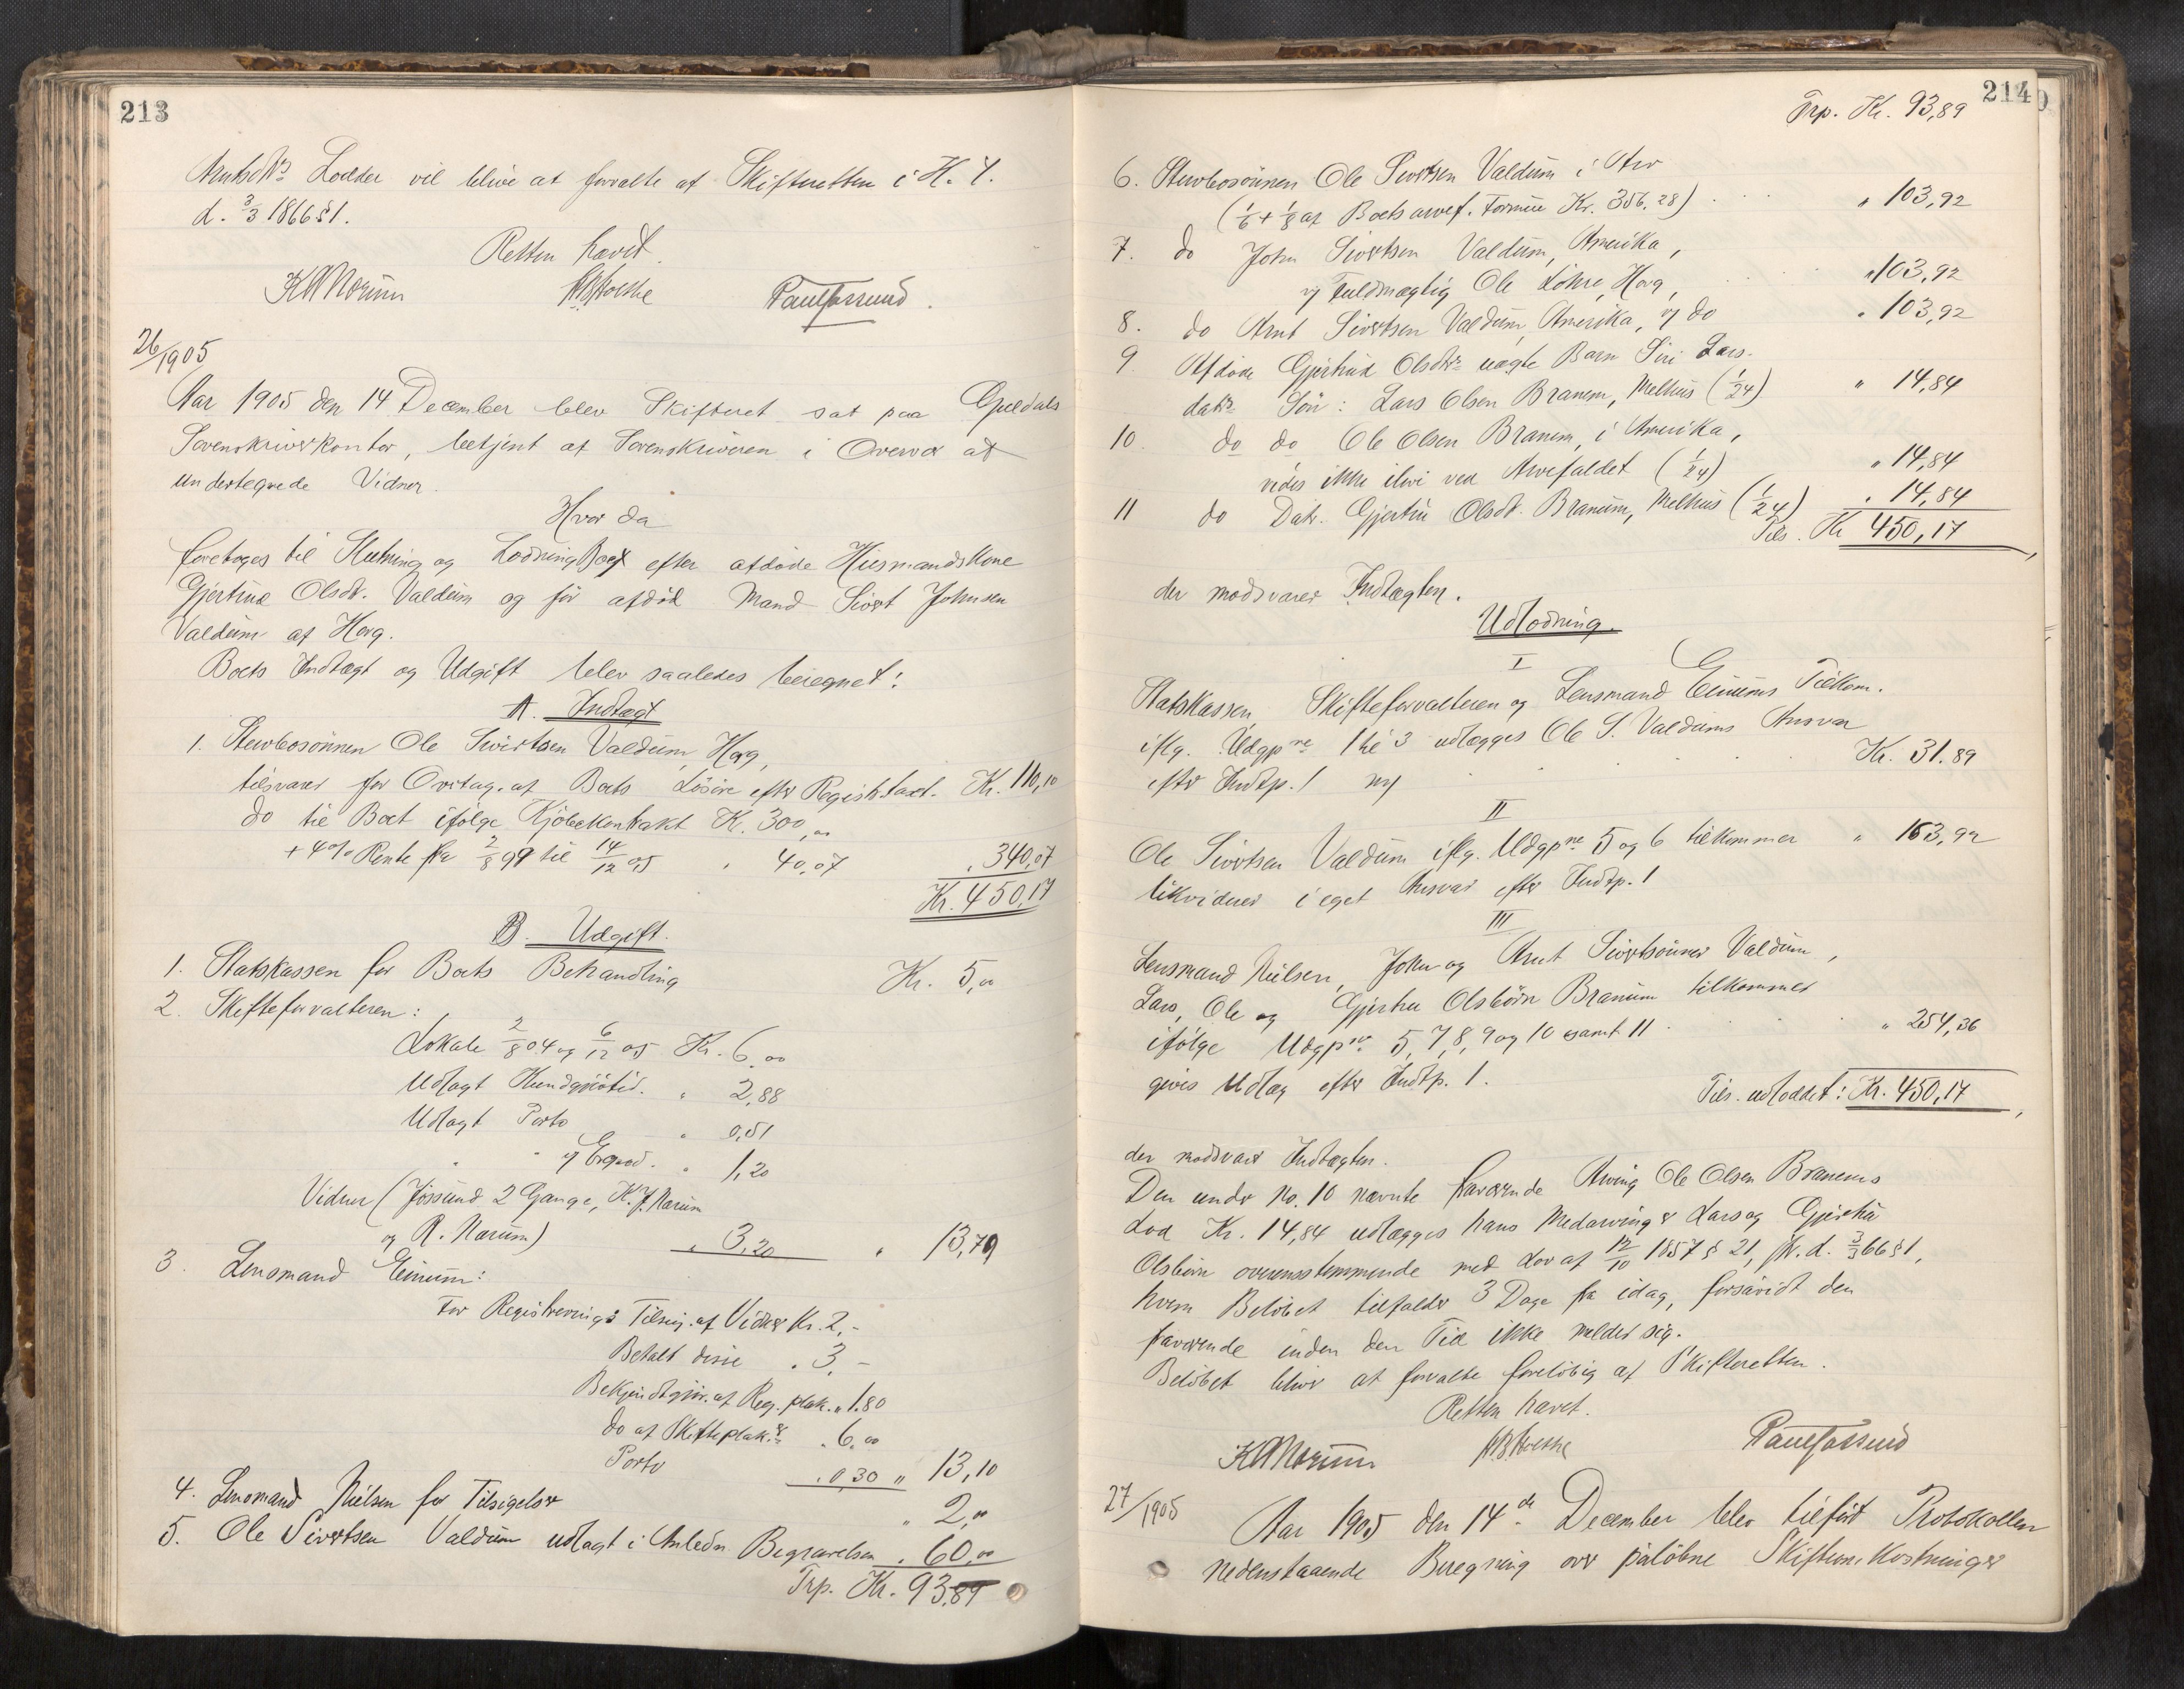 213
Arntsdtrs Lodder vil blive at forvalte af Skifteretten i H. t.
d. 3/3 1866 § 1.
Retten hævet.
Paul Jøssund.
26/1905
Aar 1905 den 14 December blev Skifteret sat paa Guldals
Sorenskriverkontor, betjent af Sorenskriveren i Overvær af
undertegnede Vidner.
Hvor da
foretoges til Slutning og Lodning Boet efter afdøde Husmandskone
Gjertrud Olsdt. Valdum og før afdød Mand Sivert Johnsen
Valdum af Horg.
Boets Indtægt og Udgift blev saaledes beregnet:
A. Indtægt
1. Stervbosønnen Ole Sivertsen Valdum, Horg,
tilsvarer for Overtag. af Boets Løsøre efter Registr.taxt. Kr. 110,10
do til Boet ifølge Kjøbekontrakt Kr. 300,00
+ 4% Rente fra 2/8 99 til 14/12 05 " 40,07 " 340,07
Kr. 450,17
B. Udgift.
1. Statskassen for Boets Behandling Kr. 5,00
2. Skifteforvalteren:
Lokale 2/8 04 og 6/12 05 Kr. 6,00
Udlagt Kundgjøtid. " 2,88
Udlagt Porto " 0,51
" " 1,20
Vidner (Jøssund 2 Gange, K. J. Narum
og R. Narum) " 3,20 " 13,79
3. Lensmand Einum:
For Registrering & Tilsig. af Vidner Kr. 2,-
Betalt disse " 3,-
Bekjendtgjør. af Reg. plak. " 1.80
do af Skifteplak.r " 6,00
Porto " 0,30 " 13,10
4. Lensmand Nielsen for Tilsigelser " 2,00
5. Ole Sivertsen Valdum udlagt i Anledn. Begravelsen " 60,00
Trp. Kr. 93,89
214
Trp. Kr. 93,89
6. Stervbosønnen Ole Sivertsen Valdum i Arv
(1/6 + 1/8 af Boets arvef. Formue Kr. 356.28) " 103,92
7. do John Sivertsen Valdum, Amerika,
v/ Fuldmægtig Ole Løhre, Horg, " 103,92
8. do Arnt Sivertsen Valdum, Amerika, v/ do " 103,92
9 Afdøde Gjertrud Olsdtrs uægte Barn Siri Lars-
datrs Søn: Lars Olsen Branem, Melhus (1/24) " 14,84
10. do do Ole Olsen Branem, i Amerika,
vides ikke ilive ved Arvefaldet (1/24) " 14,84
11 do Datr. Gjertru Olsdt. Branum, Melhus (1/24) " 14,84
Tils. Kr 450,17,
der modsvarer Indtægten.
Udlodning.
I
Statskassen, Skifteforvalteren og Lensmand Einums Tilkom.
iflg. Udgp.ne 1 til 3 udlægges Ole S. Valdums Ansvar
efter Indtp. 1 Kr. 31.89
II
Ole Sivertsen Valdum iflg. Udgp.ne 5 og 6 tilkommer " 163,92
likviderer i eget Ansvar efter Indtp. 1
III
Lensmand Nielsen, John og Arnt Sivertsønner Valdum,
Lars, Ole og Gjertru Olsbørn Branum tilkommer
ifølge Udgp.ne 5, 7, 8, 9 og 10 samt 11 " 254,36
gives Udlæg efter Indtp. 1.
Tils. udloddet: Kr. 450,17,
der modsvarer Indtægten.
Den under No. 10 nævnte fraværende Arving Ole Olsen Branems
Lod Kr. 14,84 udlægges hans Medarvinger Lars og Gjertru
Olsbørn overensstemmende med Lov af 12/10 1857 § 21, jfr. d. 3/3 66 § 1,
hvem Beløbet tilfalder 3 Dage fra idag, forsåvidt den
fraværende inden den Tid ikke melder sig.
Beløbet bliver at forvalte foreløbig af Skifteretten.
Retten hævet.
Paul Jøssund
27/1905
Aar 1905 den 14de December blev tilført Protokollen
nedenstaaende Beregning over påløbne Skifteomkostninger